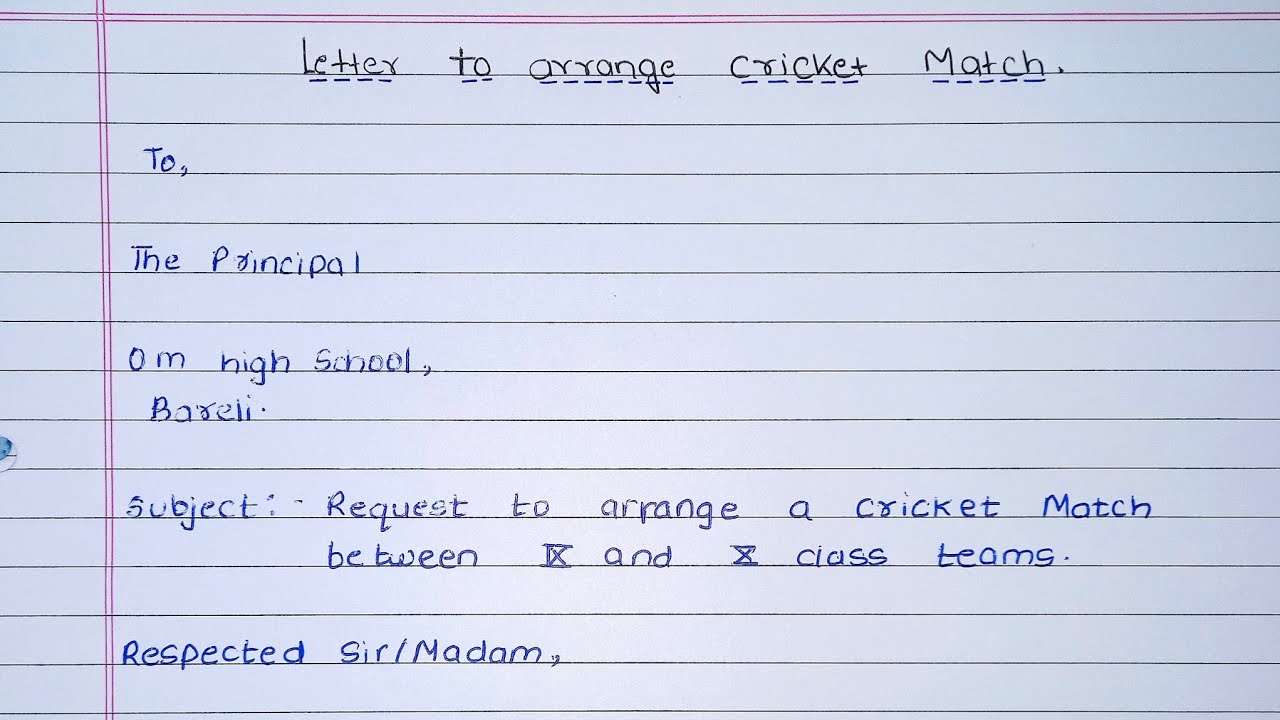 Letter to arrange cricket Match.
To,
The Principal
Om high School,
Bareli.
Subject:- Request to arrange a cricket Match
between IX and X class teams.
Respected Sir/Madam,